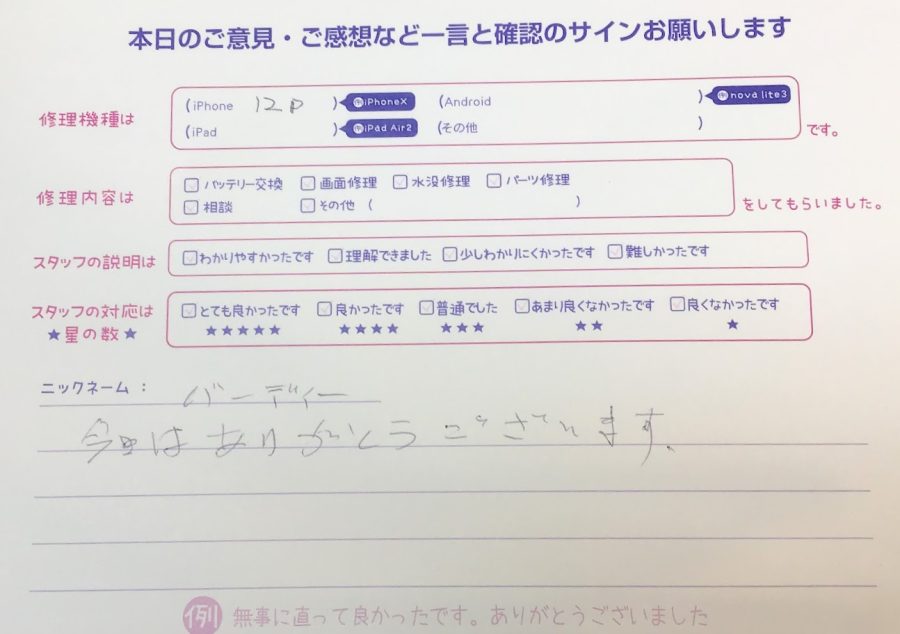 本日のご意見・ご感想など一言と確認のサインお願いします
修理機種は (iPhone 12P ) 例iPhoneX (Android ) 例nova lite3
(iPad ) 例iPad Air2 (その他 ) です。
修理内容は バッテリー交換 画面修理 水没修理 パーツ修理
相談 その他 ( ) をしてもらいました。
スタッフの説明は わかりやすかったです 理解できました 少しわかりにくかったです 難しかったです
スタッフの対応は とても良かったです 良かったです 普通でした あまり良くなかったです 良くなかったです
★星の数★ ★★★★★ ★★★★ ★★★ ★★ ★
ニックネーム： バーディー
今回はありがとうございます.
例 無事に直って良かったです。ありがとうございました